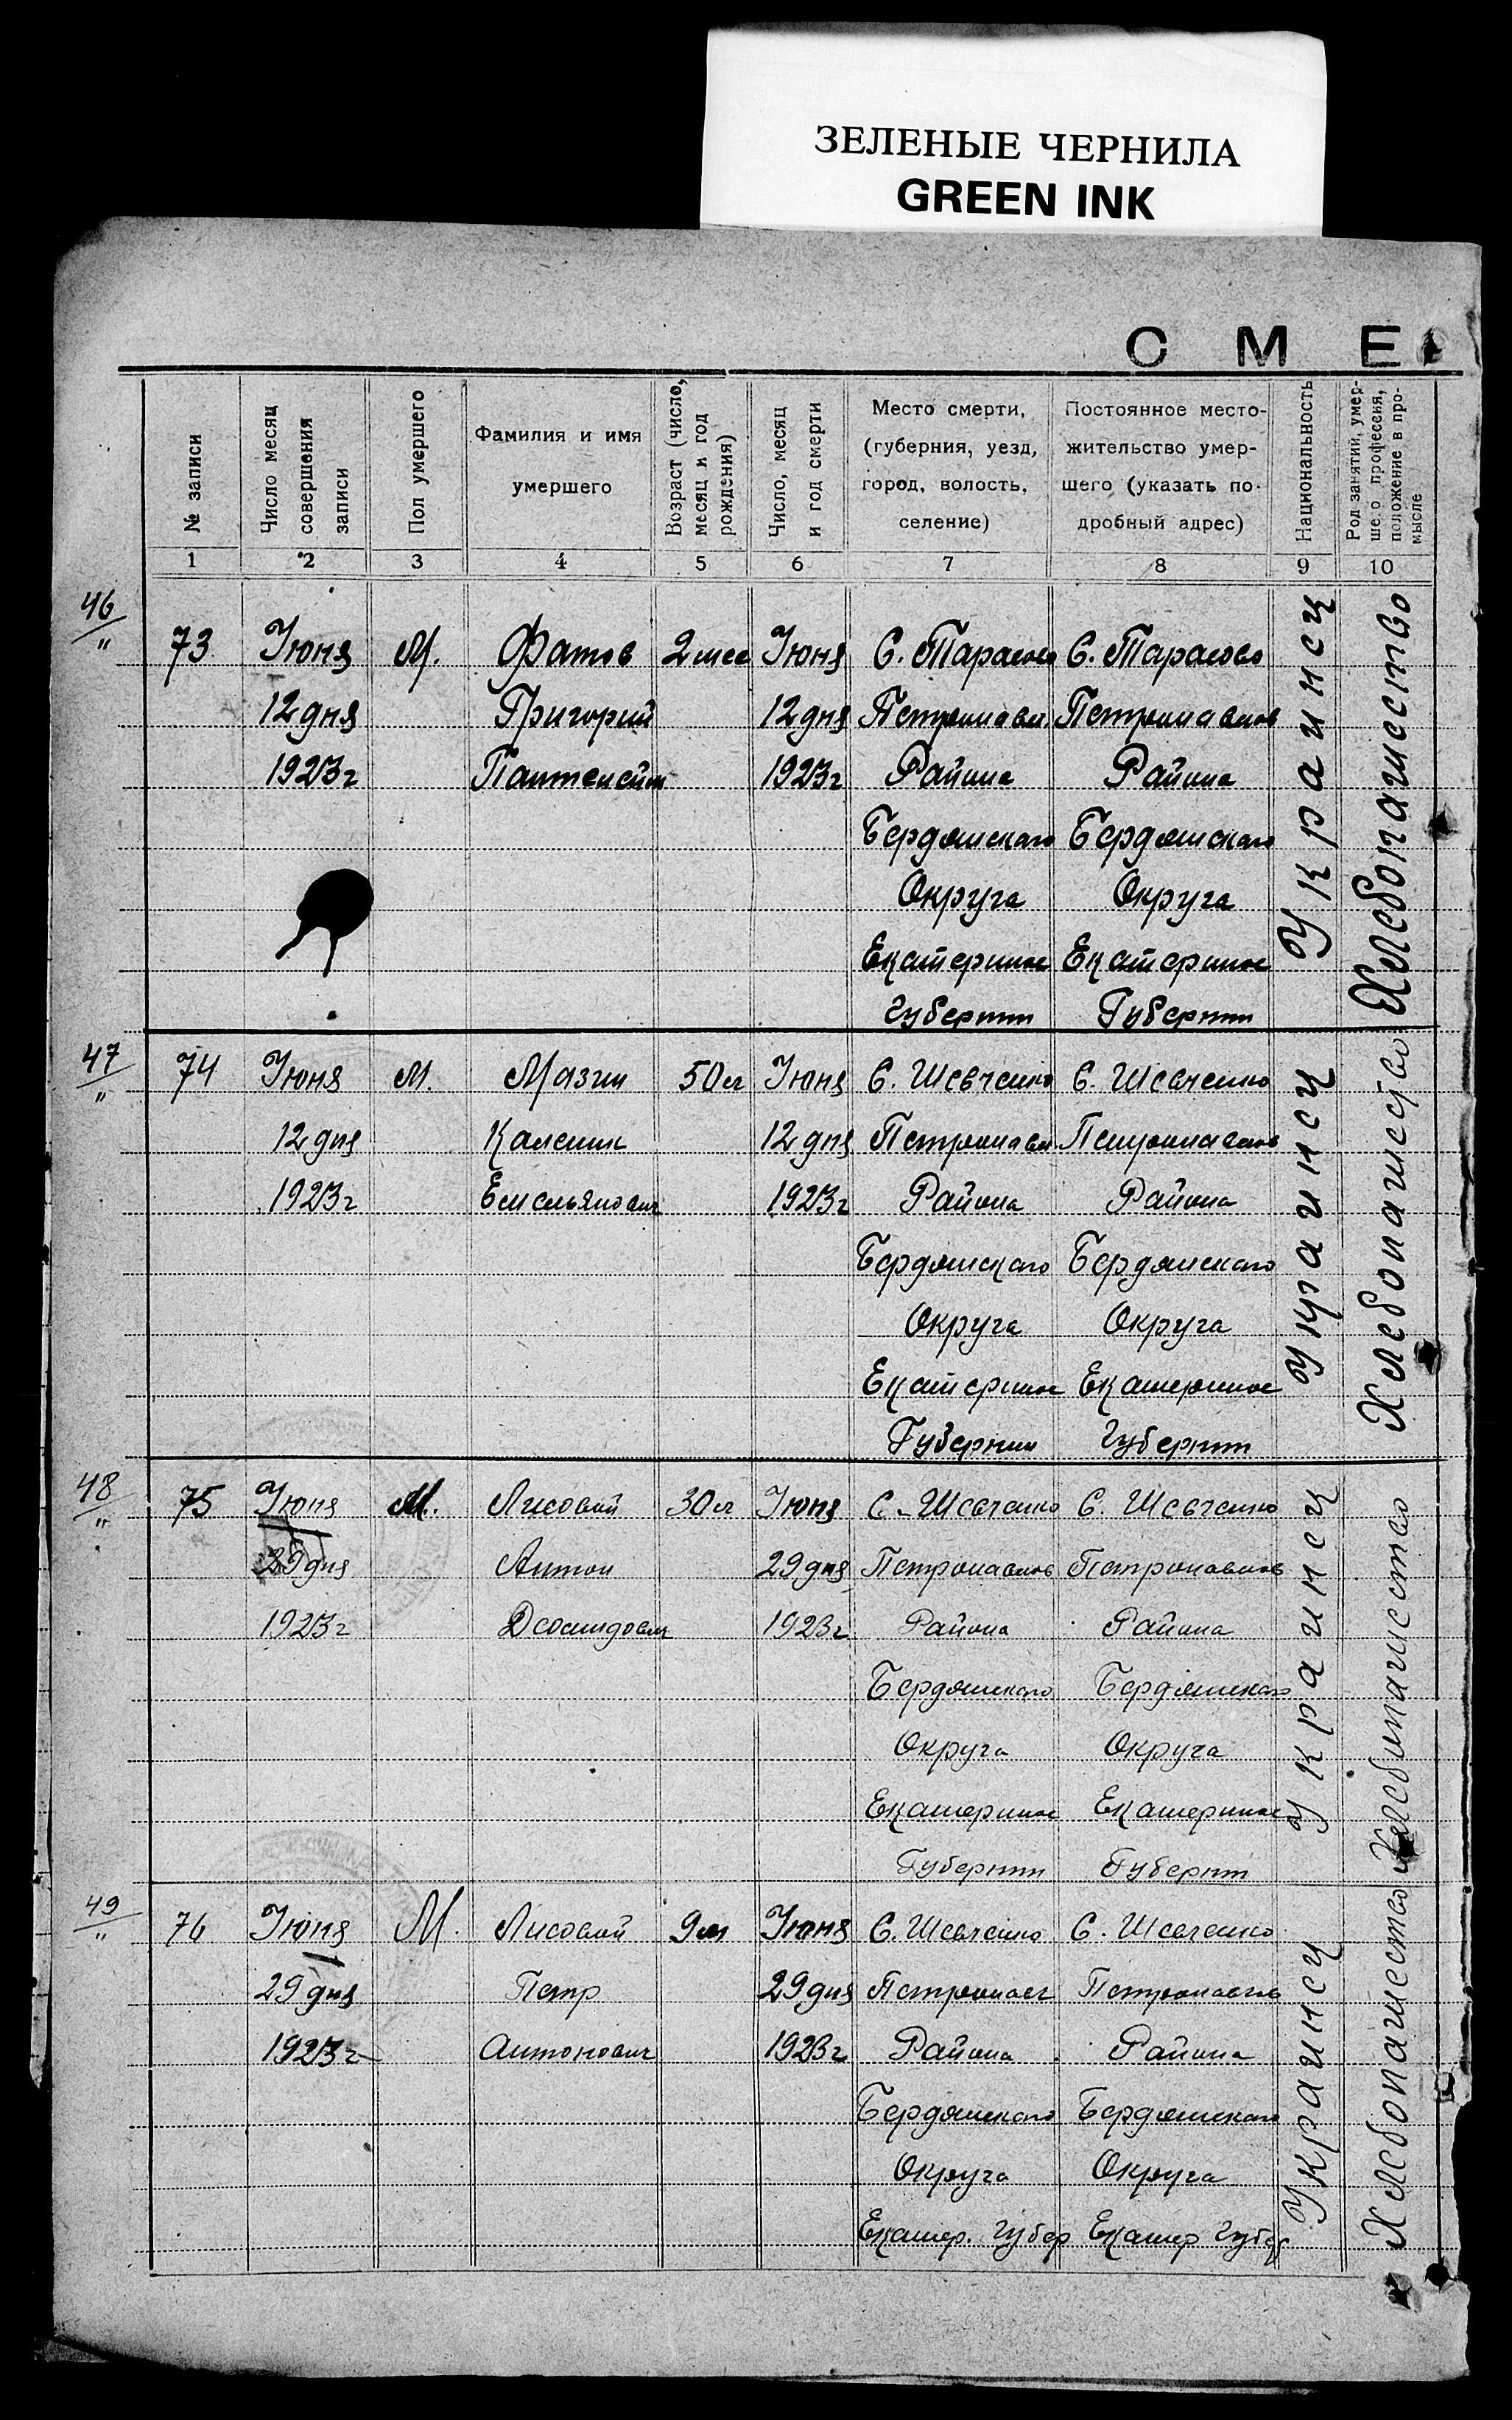 ЗЕЛЕНЫЕ ЧЕРНИЛА
GREEN INK
С М Е
№ записи
Число месяц совершения записи
Пол умершего
Фамилия и имя умершего
Возраст (число, месяц и год рождения)
Число, месяц и год смерти
Место смерти, (губерния, уезд, город, волость, селение)
Постоянное место-жительство умер-шего (указать по-дробный адрес)
Национальность
Род занятий, умер-шего профессия, положение в про-мысле
1 2 3 4 5 6 7 8 9 10
46/" 73 Июня М. Фатов 2 мес Июня С. Тарасово С. Тарасово
12 дня Григорий 12 дня Петропавл. Петропавлов
1923 г 1923 г Района Района
Бердянского Бердянского
Округа Округа
Екатеринос Екатеринос
Губернии Губернии
Украинец
Хлебопашество
47/" 74 Июня М. Мазин 50 л Июня С. Шевченко С. Шевченко
12 дня Калемик 12 дня Петропавл Петропавлов
1923 г Емельянович 1923 г Района Района
Бердянского Бердянского
Округа Округа
Екатеринос Екатеринос
Губернии Губернии
Украинец
Хлебопашество
48/" 75 Июня М. Лисовой 30 л Июня С. Шевченко С. Шевченко
29 дня Антон 29 дня Петропавлов Петропавлов
1923 г 1923 г Района Района
Бердянского Бердянского
Округа Округа
Екатеринос Екатеринос
Губернии Губернии
Украинец
Хлебопашество
49/" 76 Июня М. Лисовой 9 м Июня С. Шевченко С. Шевченко
29 дня Петр 29 дня Петропавл Петропавлов
1923 г Антонович 1923 г Района Района
Бердянского Бердянского
Округа Округа
Екатер. Губер Екатер Губер
Украинец
Хлебопашество